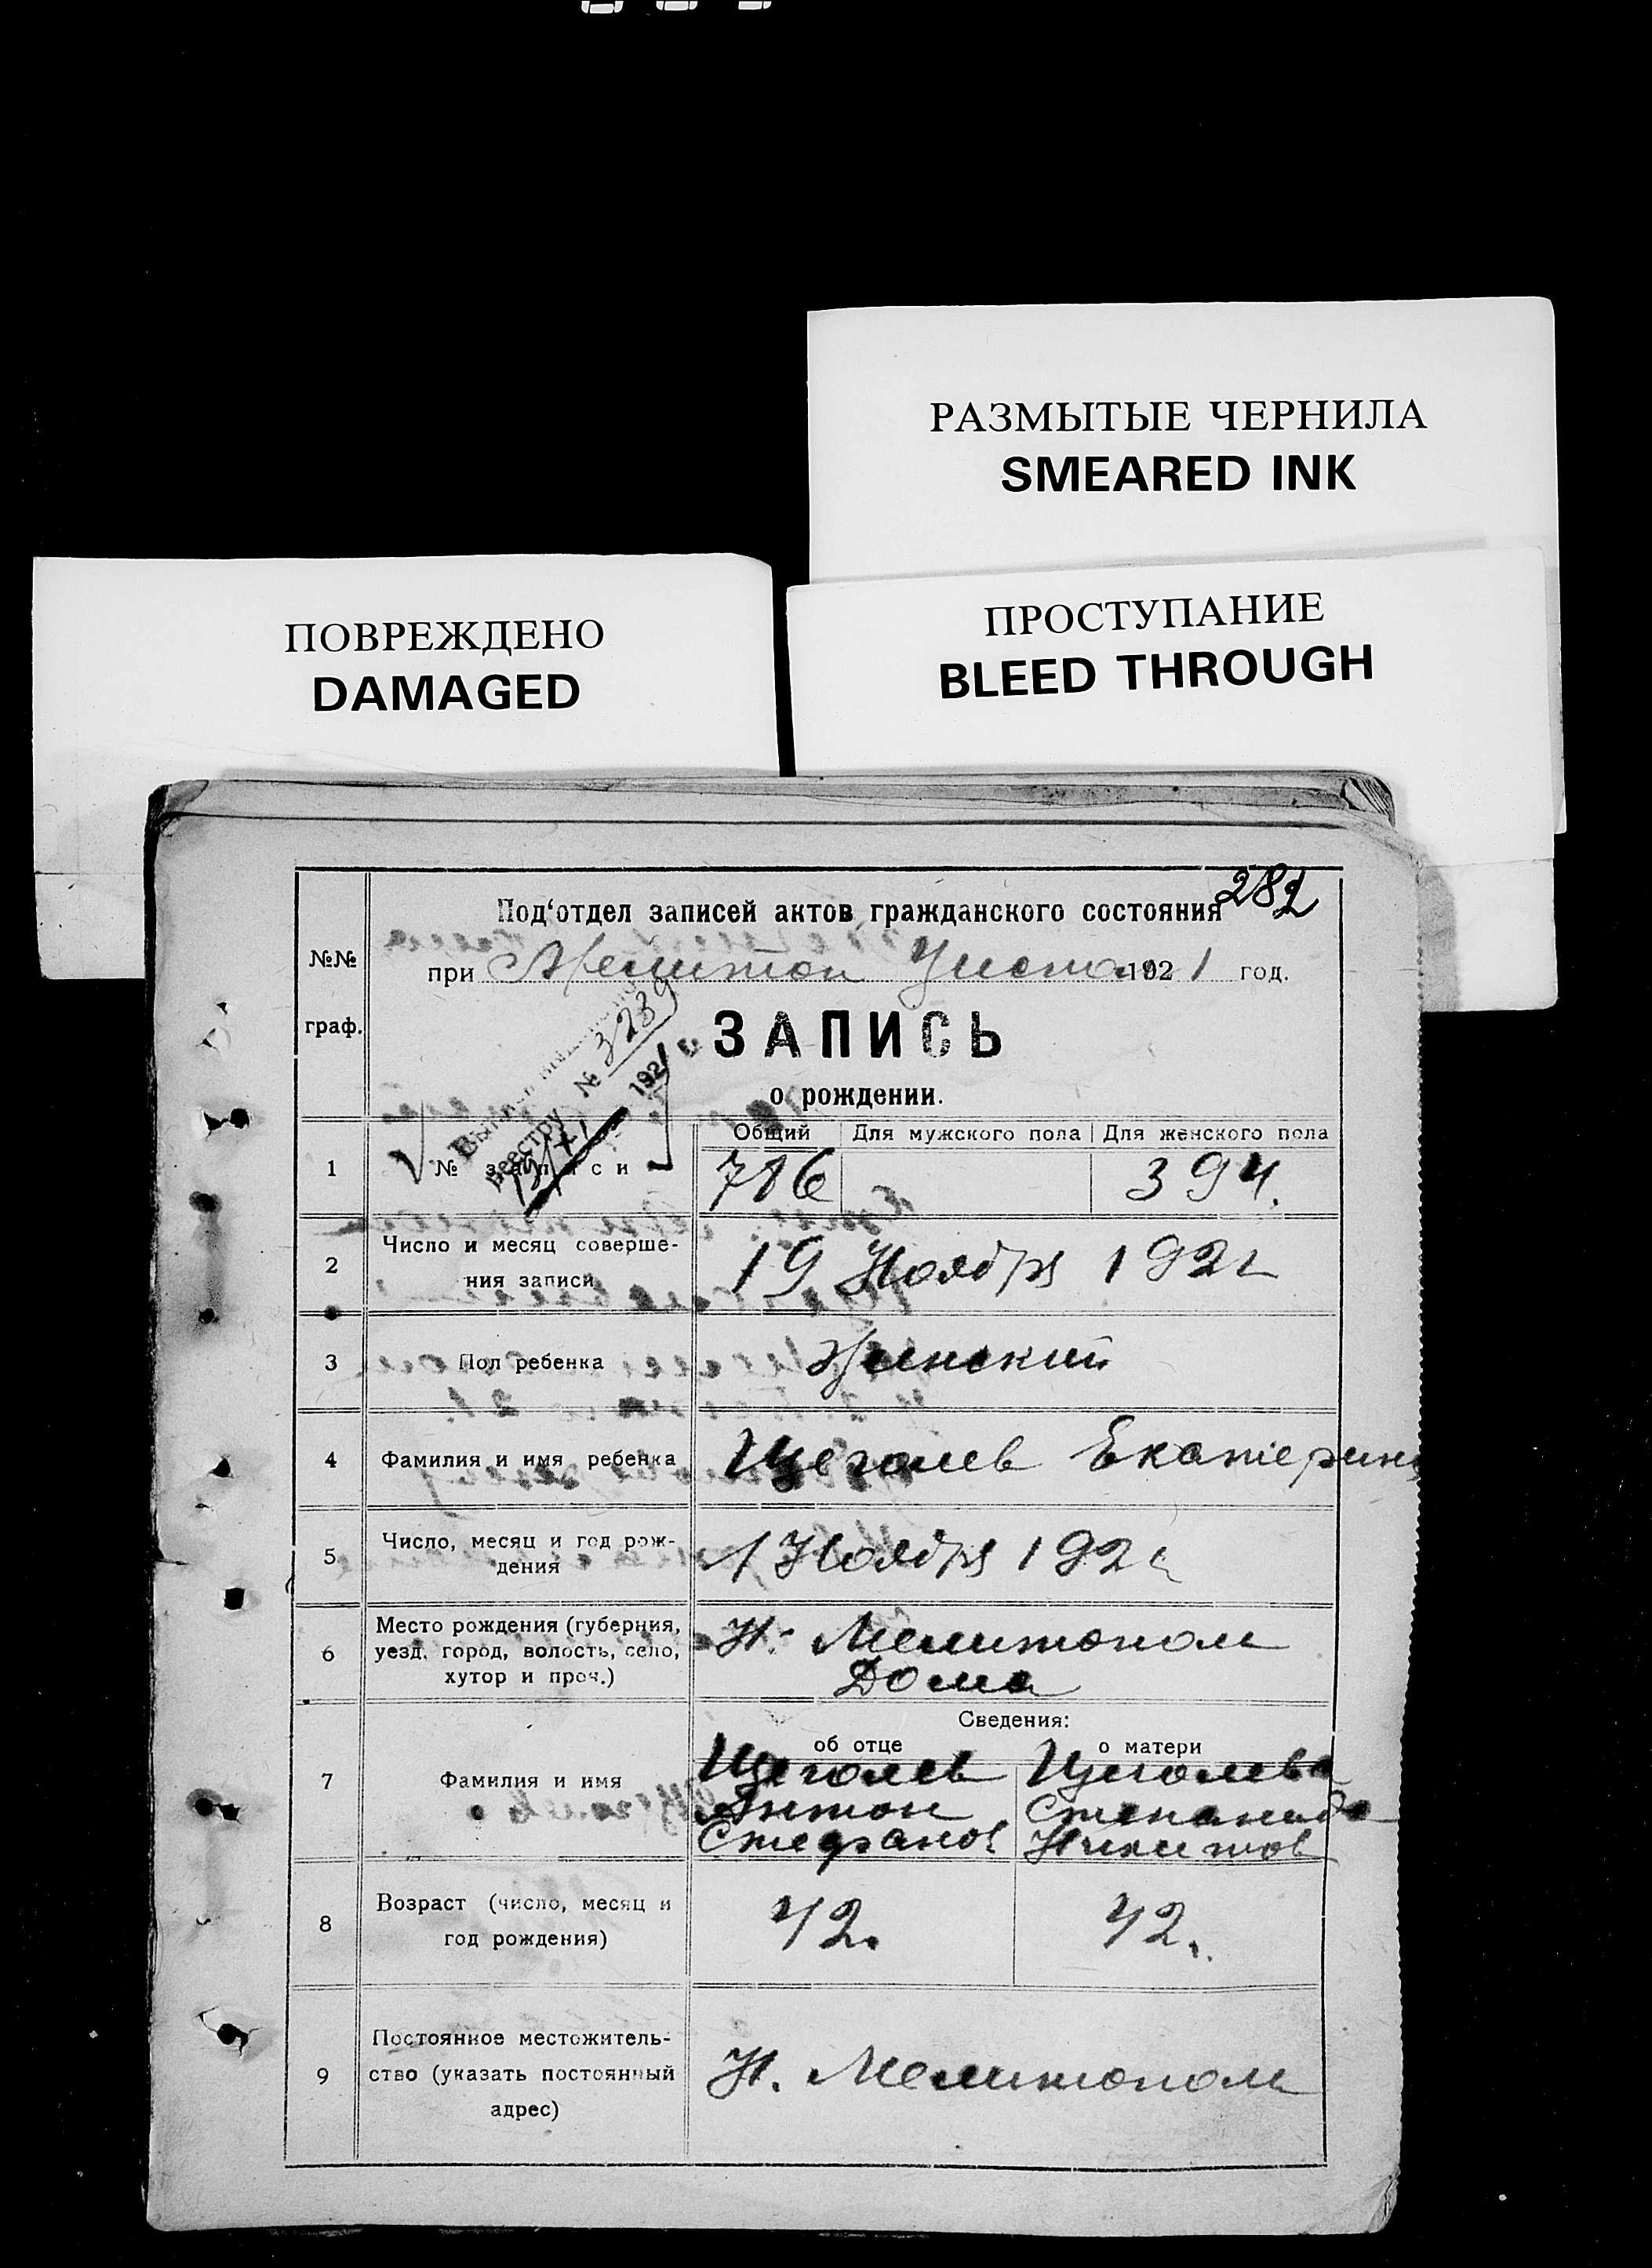 РАЗМЫТЫЕ ЧЕРНИЛА
SMEARED INK
ПРОСТУПАНИЕ
BLEED THROUGH
ПОВРЕЖДЕНО
DAMAGED
282
№№
граф.
Под‘отдел записей актов гражданского состояния
при Мелитоп 1921 год.
ЗАПИСЬ
о рождении.
реестру № 3239
1921
Общий Для мужского пола Для женского пола
1 № записи 786 394.
2 Число и месяц соверше-
ния записи 19 Ноября 1921
3 Пол ребенка Женский
4 Фамилия и имя ребенка Щеголев Екатерин
5 Число, месяц и год рож-
дения 1 Ноября 192
6 Место рождения (губерния,
уезд, город, волость, село,
хутор и проч.) Н. Мелитопол
Дома
Сведения:
об отце о матери
7 Фамилия и имя
Щеголев Щеголева
Антон Степанида
Стефанов Никитов
8 Возраст (число, месяц и
год рождения) 42. 42.
9 Постоянное местожитель-
ство (указать постоянный
адрес) Н. Мелитопол